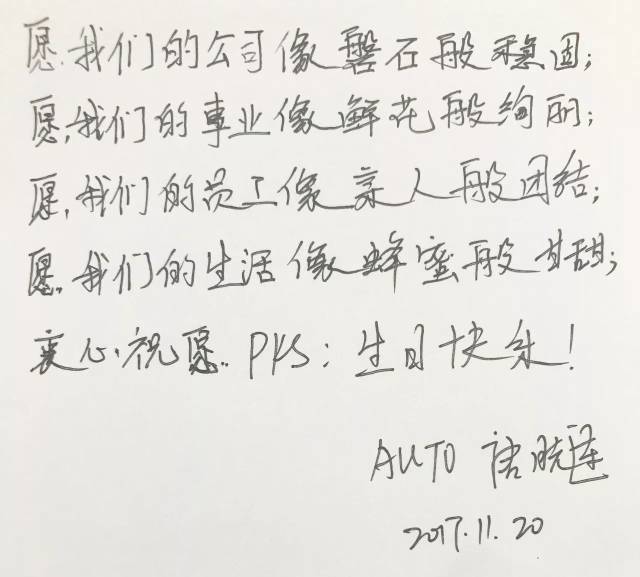 愿我们的公司像磐石般稳固;
愿,我们的事业像鲜花般绚丽;
愿,我们的员工像亲人般团结;
愿,我们的生活像蜂蜜般甘甜;
衷心祝愿 PKS: 生日快乐!
AUTO 唐晓莲
2017.11.20